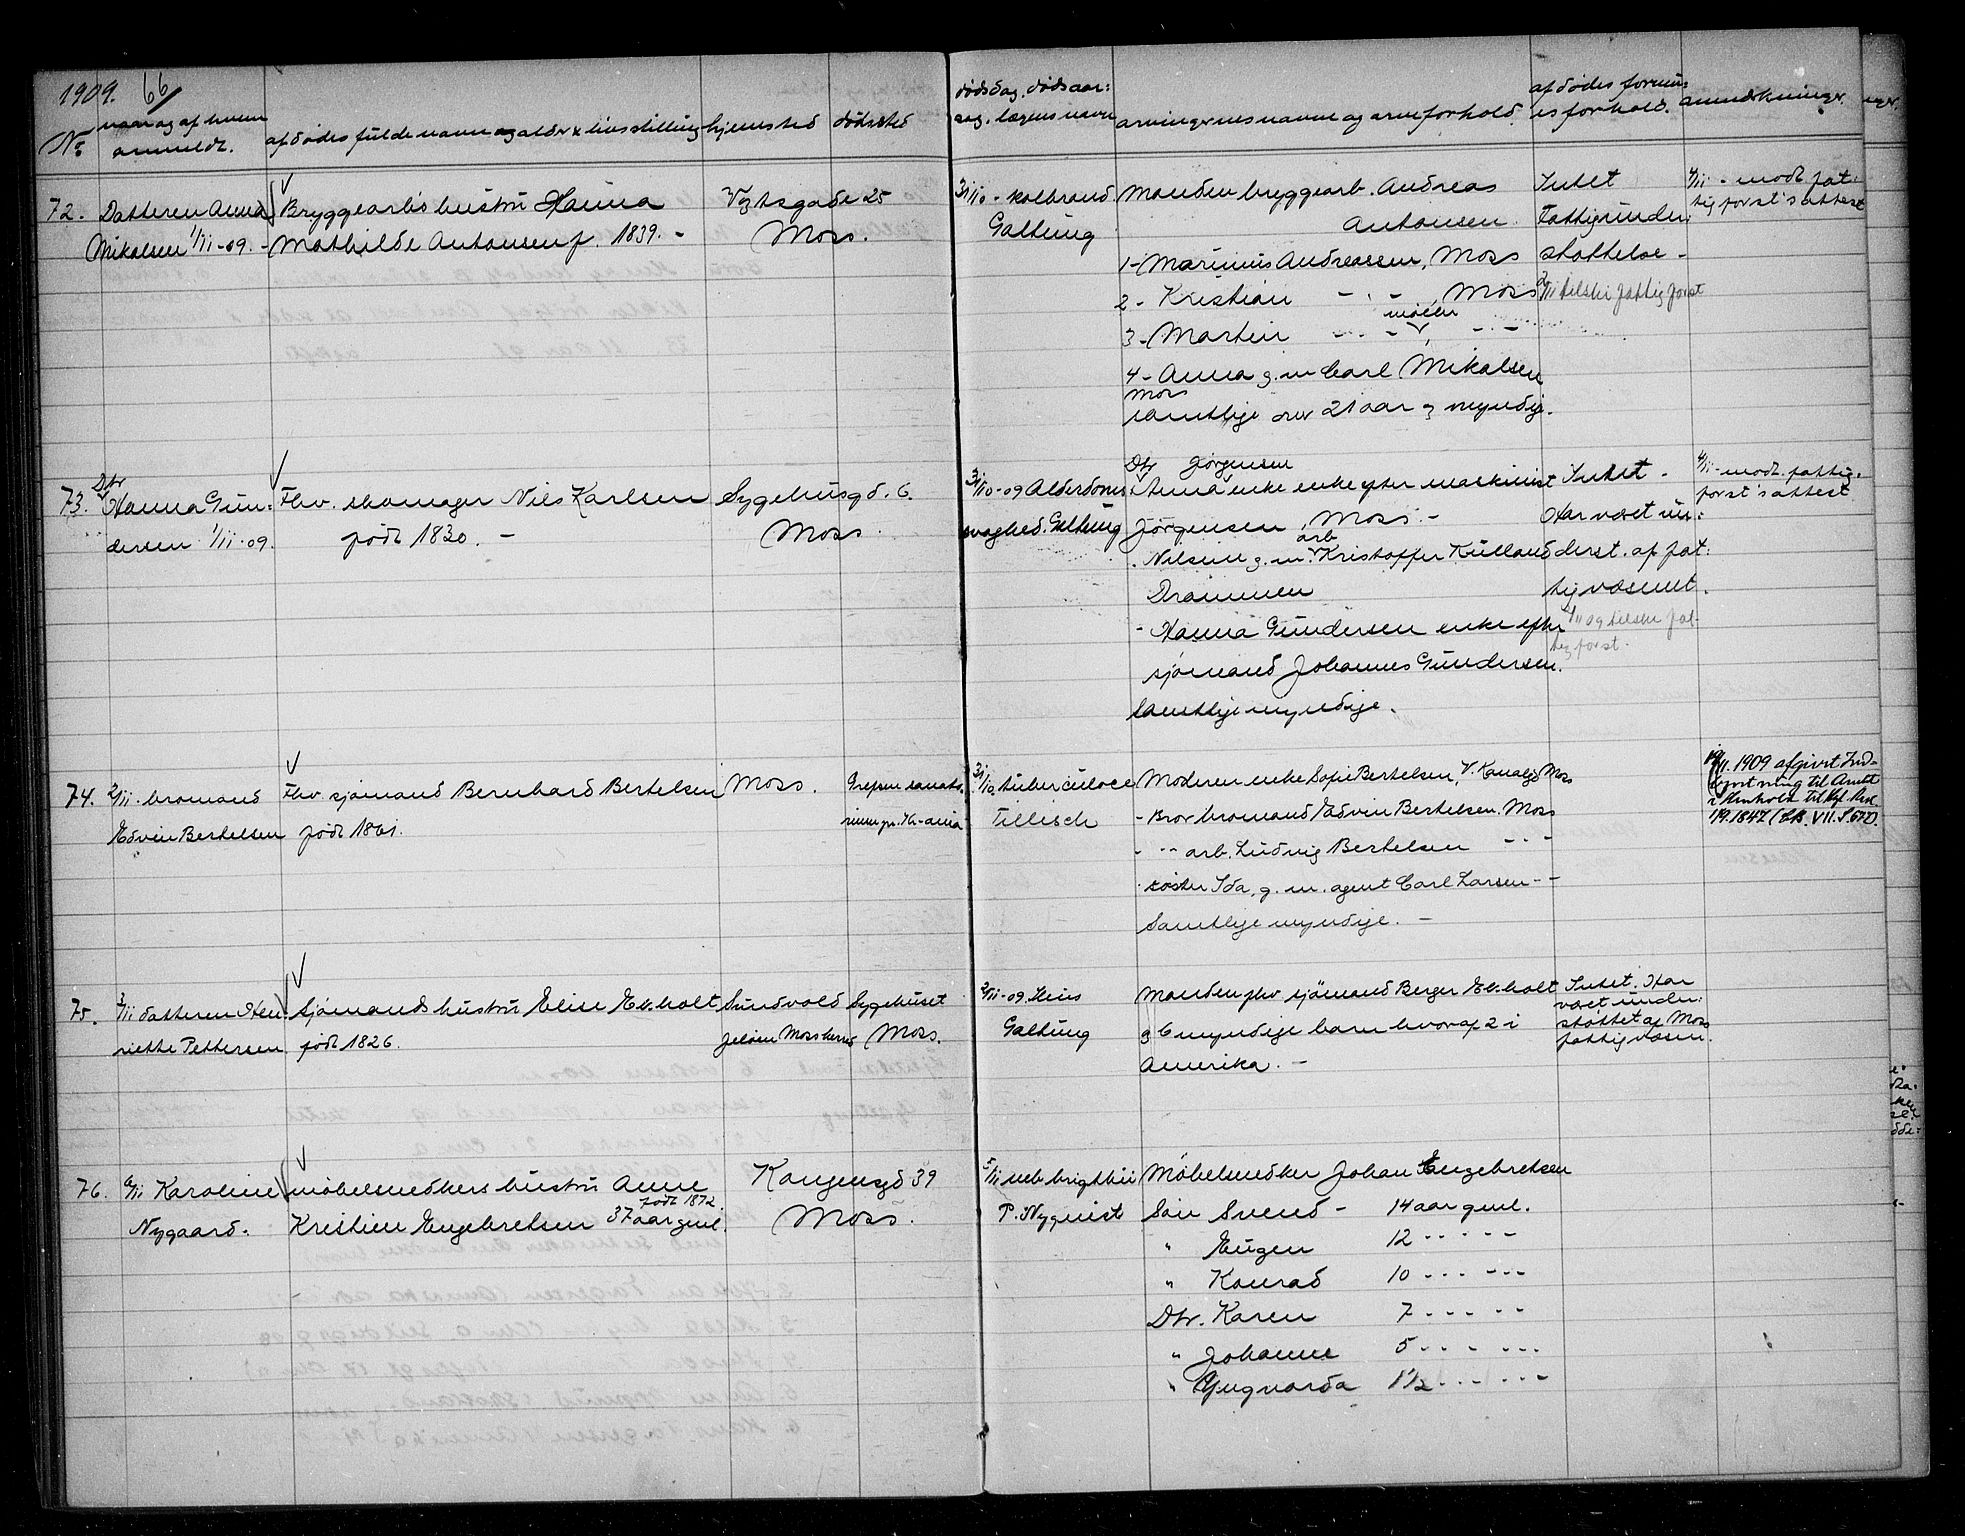 1909. 66/
No
naar og af hvem
anmeldt.
afdødes fulde navn og alder & livsstilling
hjemsted
dødssted
dødsdag, dødsaar:
sag, lægens navn
arvingernes navne og arveforhold.
afdødes formu:
esforhold.
anmerkninger.
72. Datteren Anna
Mikalsen 1/11-09. -
Bryggearb's hustru Hanna
Mathilde Antonsen f. 1839. -
Vogtsgade 25
Moss.
31/10 - Koldbrand
Galtung
Manden bryggearb. Andreas
Antonsen
1- Marinius Andreassen, Moss
2- Kristian - . - , Moss
3- Martin - - - , - . -
4- Anna g. m Carl Mikalsen
Moss
samtlige over 21 aar & myndige.
Intet
Fattigunder:
støttelse -
2/11 tilskr fattigforst
4/11 - modt. fat:
tigforst's attest
73. Dtr
Hanna Gun:
dersen 1/11-09.
Fhv. skomager Niels Karlsen
født 1830. -
Sygehusgd. 6.
Moss.
31/10-09 Alderdoms
svaghed. Galtung
Dtr Jørgensen
Anna enke efter maskinist
Jørgensen, Moss. -
arb
. Nilsine g. m. Kristoffer Kulland
Drammen
- Hanna Gundersen enke efter
sjømand Johannes Gundersen.
Samtlige myndige.
Intet -
Har været un:
derst. af fat:
tigvæsenet.
2/11 09 tilskr fat-
tigforst.
4/11- modt. fattig.
forst's attest
74. 2/11. bromand
Edvin Bertelsen
Fhv. sjømand Bernhard Bertelsen
født 1861.
Moss.
Grefsen sanato-
rium pr. Kr-ania
31/10 tuberculose
Tillisch
Moderen enke Sofie Bertelsen, V. Kanalgd Moss
- Bror bromand Edvin Bertelsen. Moss
- -"- arb. Ludvig Bertelsen - - -
. søster Ida, g. m. agent Carl Larsen - -
Samtlige myndige. -
19/11. 1909 afgivet Ind-
beretning til Amtet
i Henhold til Kgl. Res.
1/9. 1847
75. 3/11 datteren Hen
riette Pettersen
Sjømands hustru Elise Ekholt
født 1826.
Sundvold
Jeløen Moss herred
Sygehuset
Moss.
2/11-09. Ileus
Galtung
Manden fhv sjømand Berger Ekholt
& 6 myndige barn hvoraf 2 i
Amerika. -
Intet. Har
været under:
støttet af Moss
fattigvæsen.
76. 6/11 Karoline
Nygaard.
møbelsnedkers hustru Anne
født 1872.
Kristine Engebretsen 37 aar gml.
Kongensgd 39
Moss.
5/11 mb. brigthii
P. Nyquist
Møbelsnedker Johan Engebretsen
Søn Svend - 14 aar gml.
" Eugen 12 - - - - -
" Konrad 10 - - - - -
Dtr. Karen 7 - - - - -
" Johanne 5 - - - - -
" Yngvarda 1 1/2 - - - - -